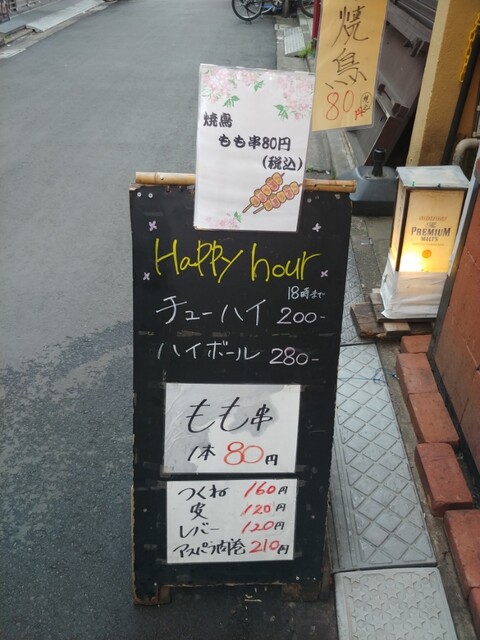 焼鳥
80円
税込
焼鳥
もも串80円
(税込)
Happy hour
18時まで
チューハイ 200-
ハイボール 280-
もも串
1本 80円
つくね 160円
皮 120円
レバー 120円
アスパラ肉巻 210円
The
PREMIUM
MALT'S